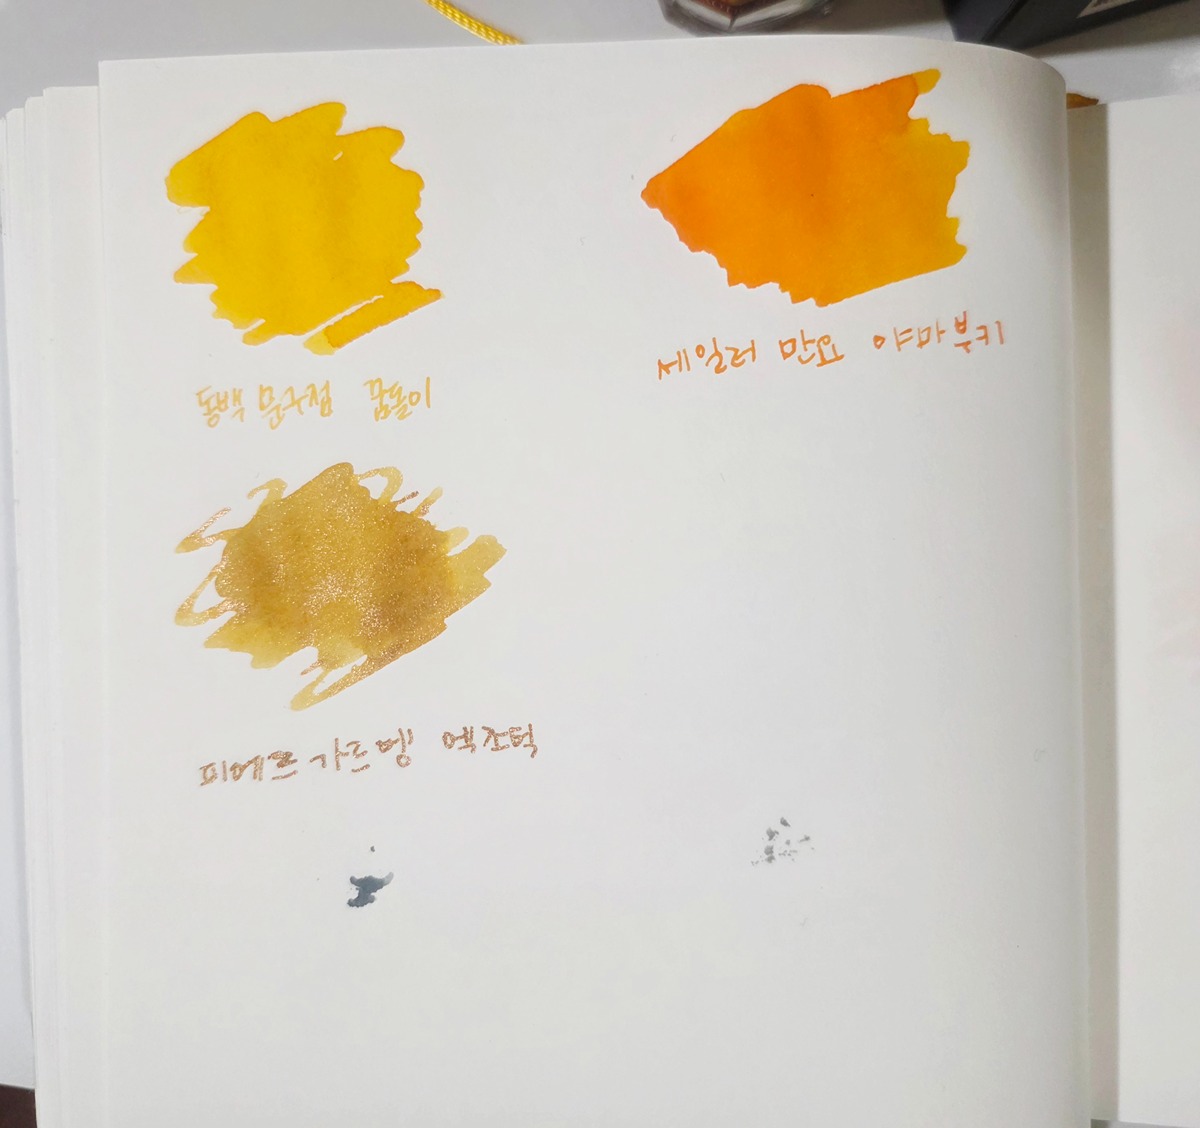 동백문구점 꿈돌이
세일러 만요 야마부키
피에르가르뎅 엑조틱